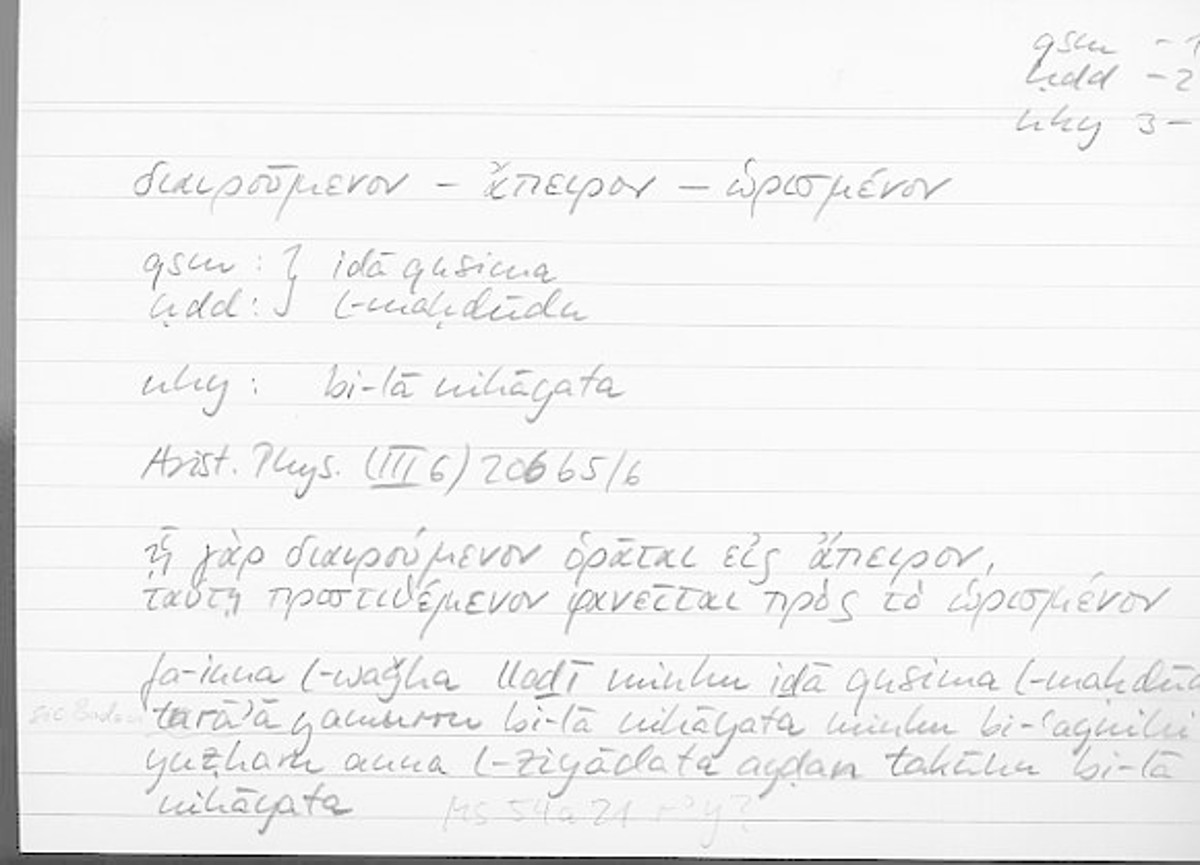 qsm - 1
ḥdd - 2
nhy 3 -
διαιρούμενον - ἄπειρον - ὡρισμένον
qsm : } iḏā qusima
ḥdd : } l-maḥdūdu
nhy : bi-lā nihāyata
Arist. Phys. (III 6) 206 b5/6
ᾗ γὰρ διαιρούμενον ὁρᾶται εἰς ἄπειρον,
ταύτῃ προστιθέμενον φανεῖται πρὸς τὸ ὡρισμένον
fa-inna l-waǧha llaḏī minhu iḏā qusima l-maḥdūd
sic Badawi tarā'ā yamurru bi-lā nihāyata minhu bi-ʿaynihi
yuẓharu anna l-ziyādata ayḍan takūnu bi-lā
nihāyata MS 54a21 r'y?